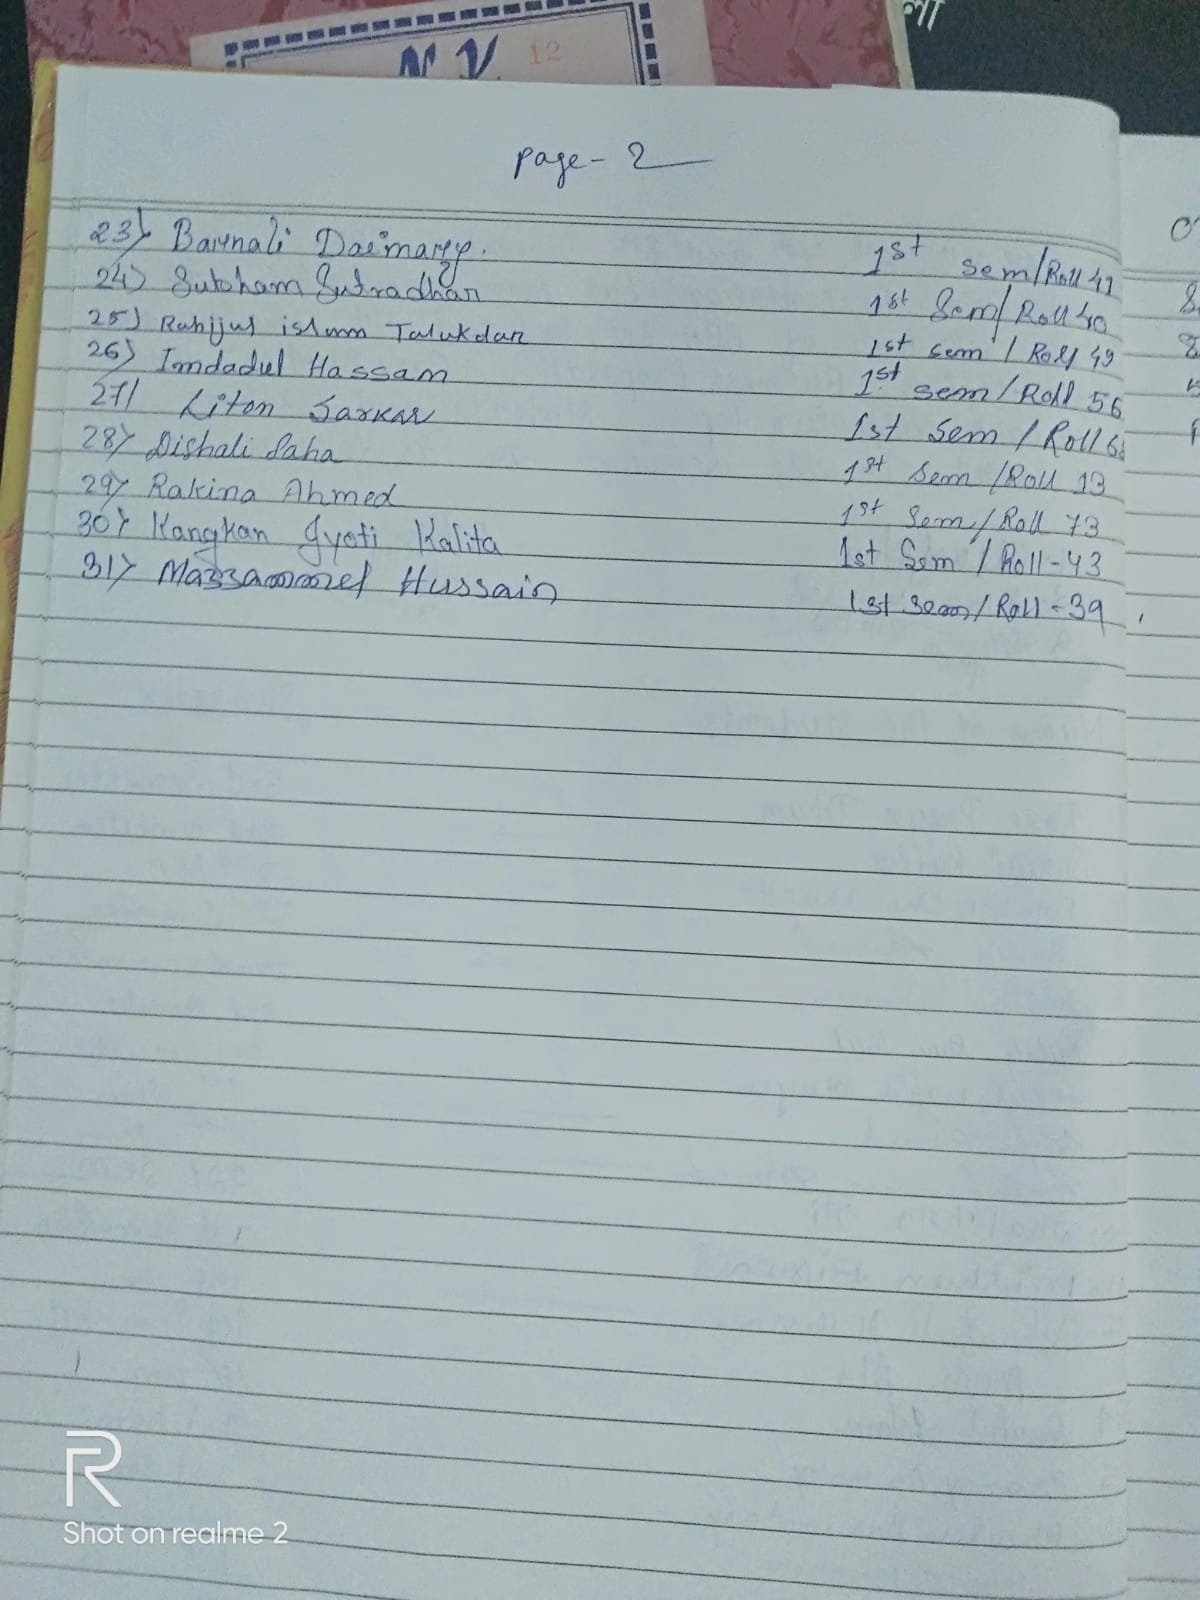 লা
N.V. 12
Page - 2
23) Barnali Daimary. 1st sem/Roll 41
24) Subham Sutradhar 1st Sem/Roll 40
25) Rahijul islam Talukdar 1st sem / Roll 49
26) Imdadul Hassam 1st sem/Roll 56
27) Liton Sarkar 1st Sem / Roll
28) Dishali Saha 1st Sem /Roll 13
29) Rakina Ahmed 1st Sem/Roll 73
30) Kangkan Jyoti Kalita 1st Sem / Roll-43
31) Mazzammel Hussain 1st Sem/Roll-39
R
Shot on realme 2